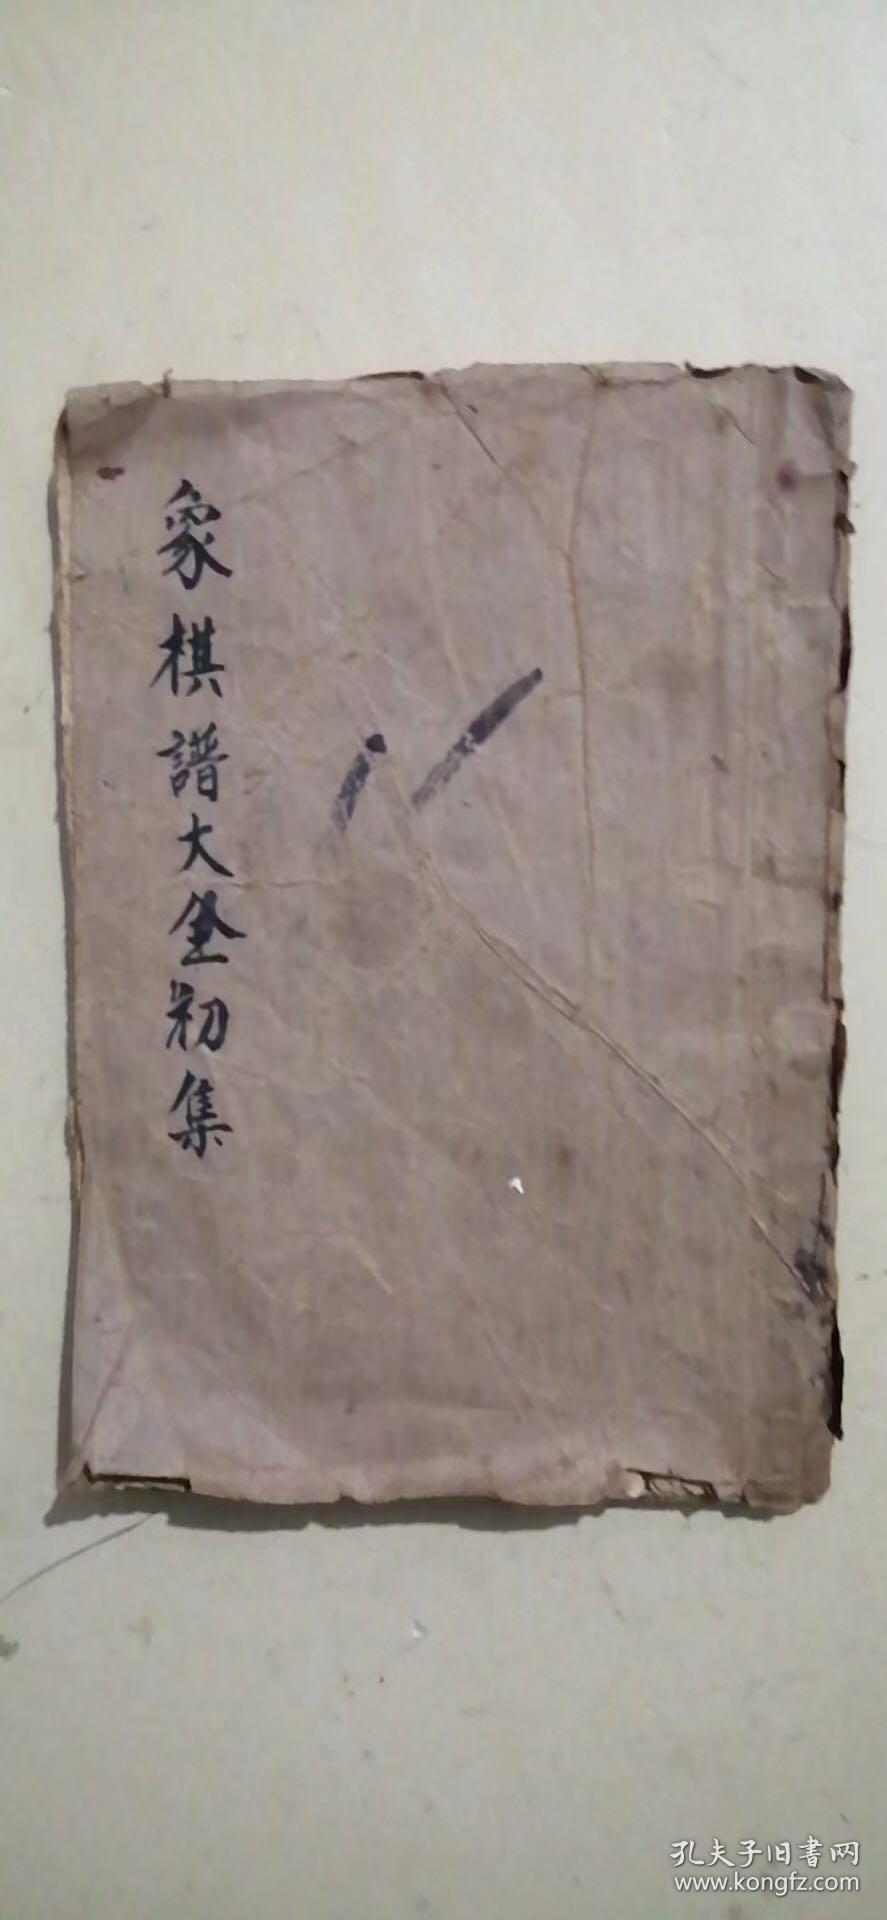 象棋譜大全初集
孔夫子旧書网
www.kongfz.com